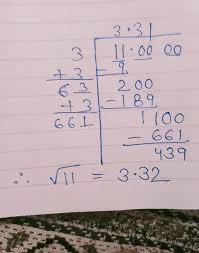 3.31
3 11.00 00
+3 -9
63 200
+3 -189
661 1100
-661
439
∴ √11 = 3.32